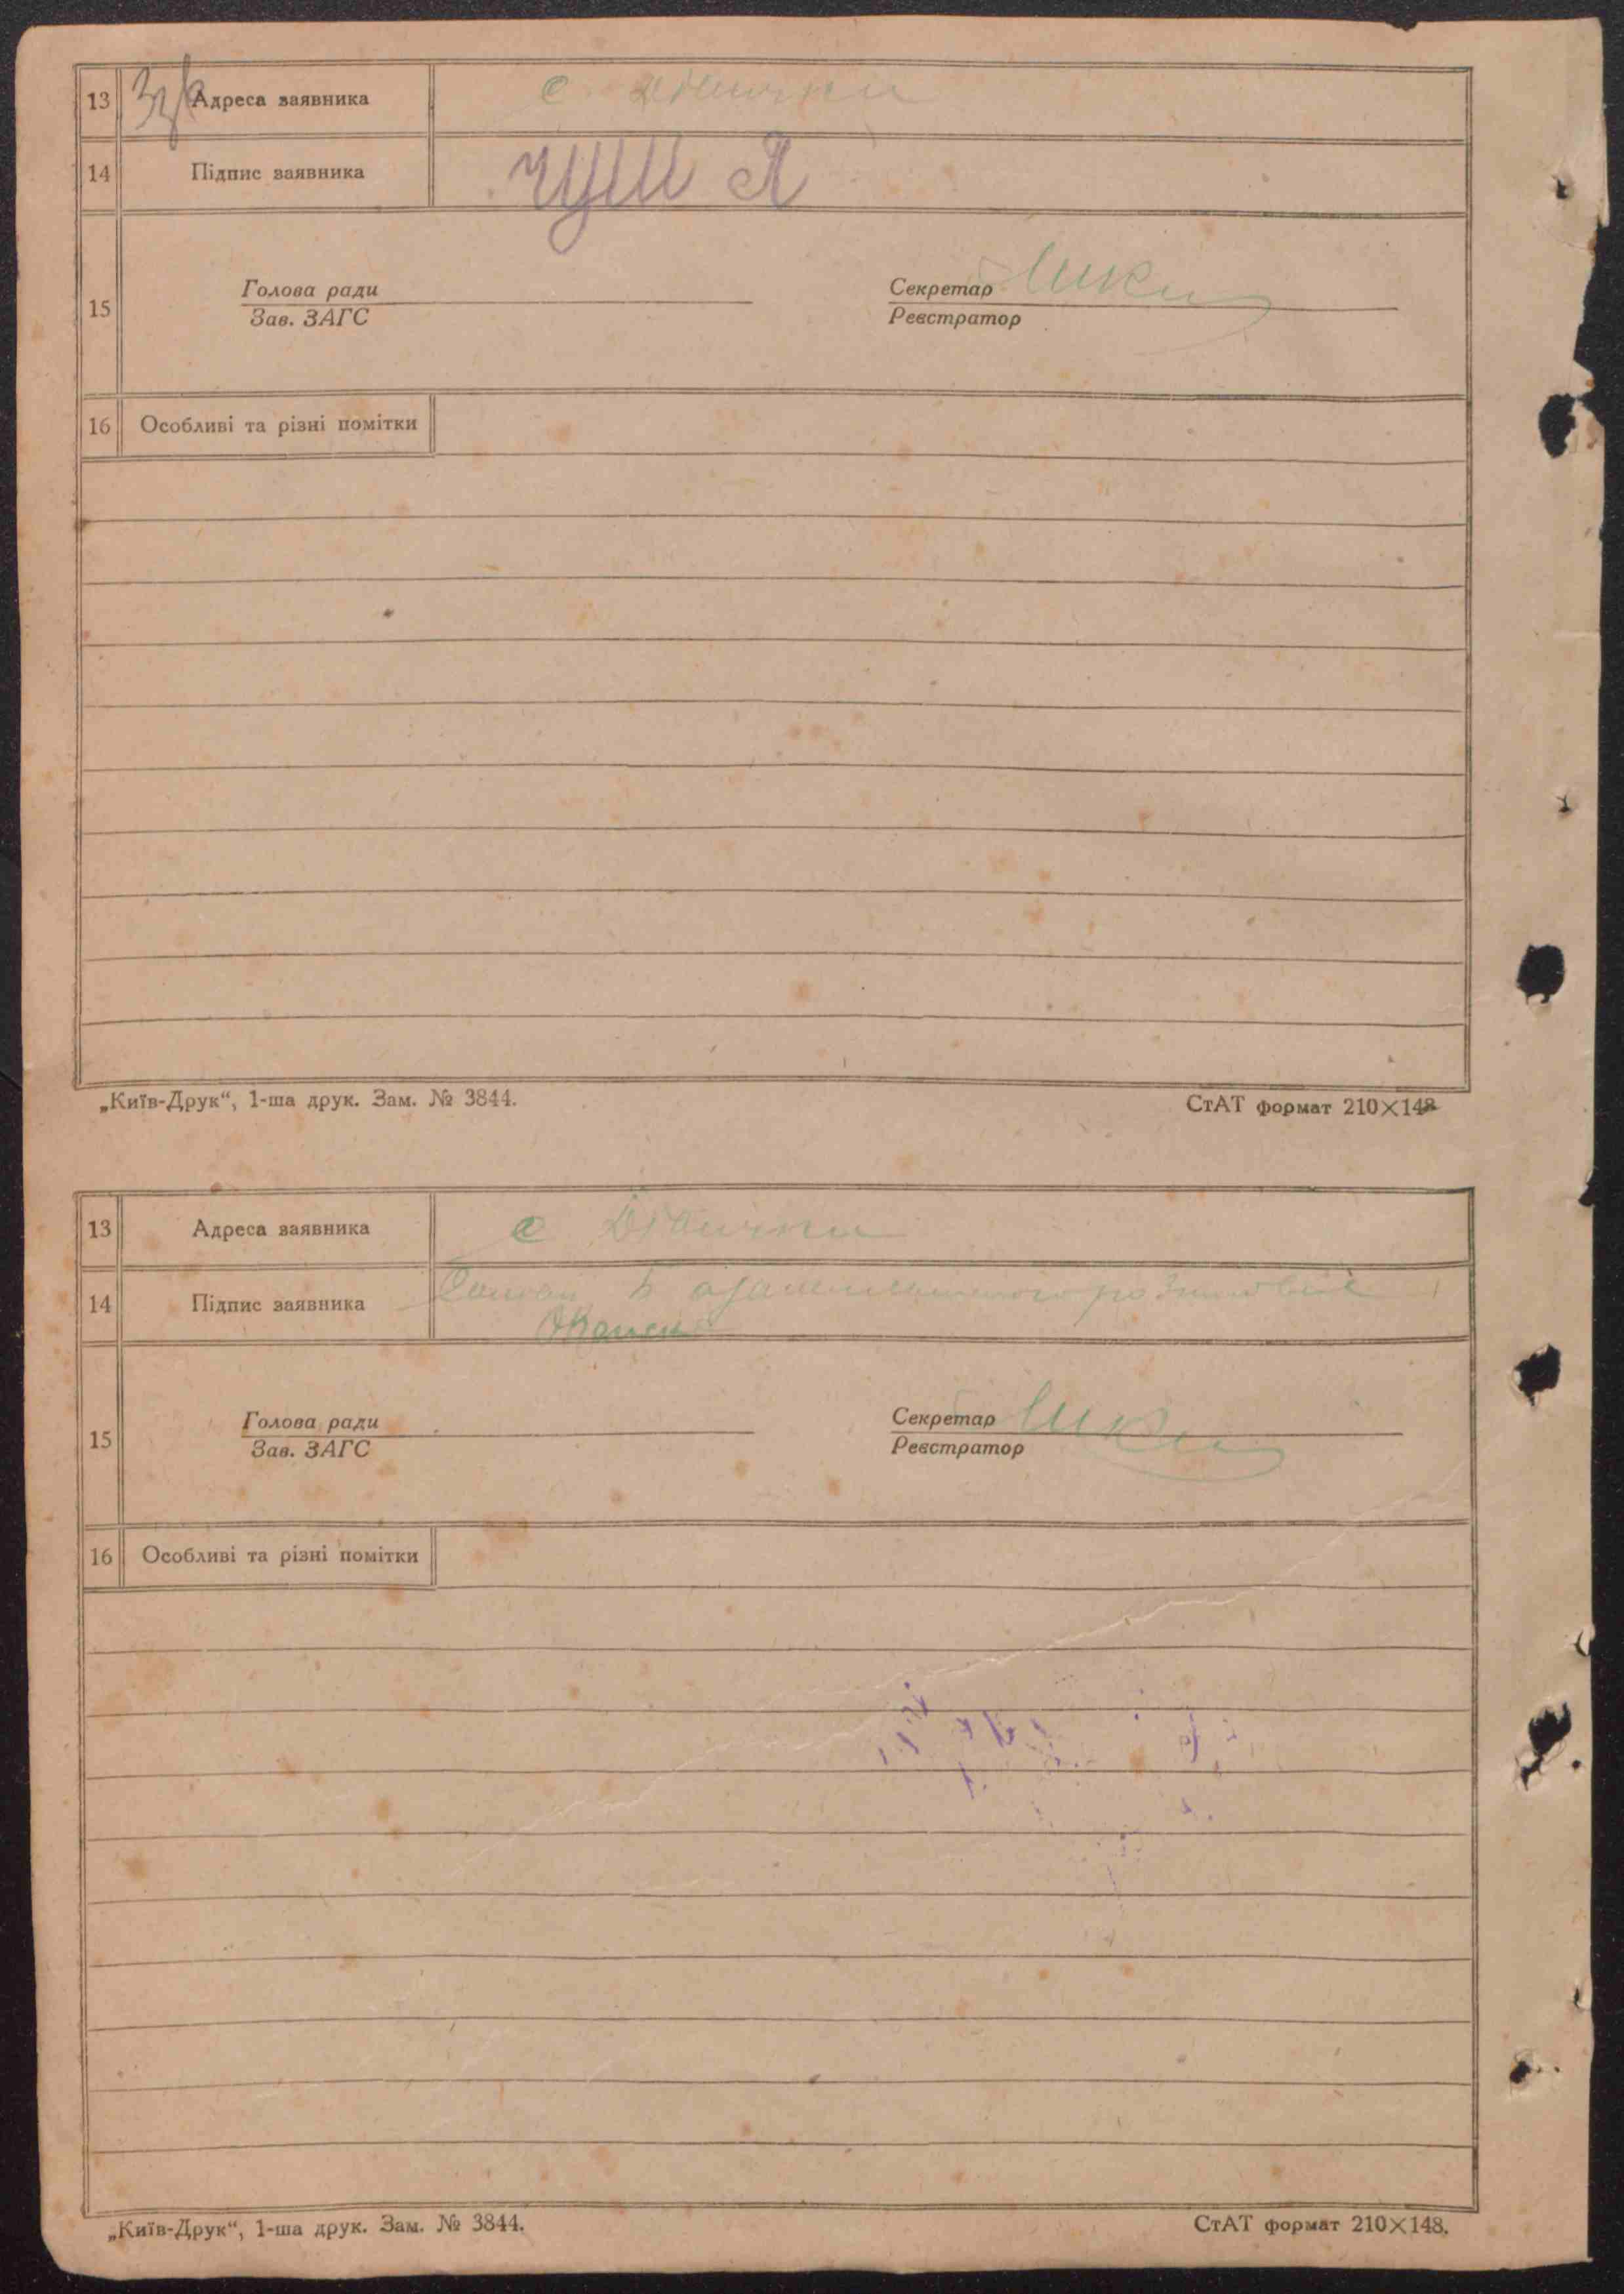 13 Адреса заявника с. Дівички
14 Підпис заявника
15 Голова ради Секретар
Зав. ЗАГС Реєстратор
16 Особливі та різні помітки
„Київ-Друк“, 1-ша друк. Зам. № 3844. СтАТ формат 210×148
13 Адреса заявника с Дівички
14 Підпис заявника
15 Голова ради Секретар
Зав. ЗАГС Реєстратор
16 Особливі та різні помітки
„Київ-Друк“, 1-ша друк. Зам. № 3844. СтАТ формат 210×148.